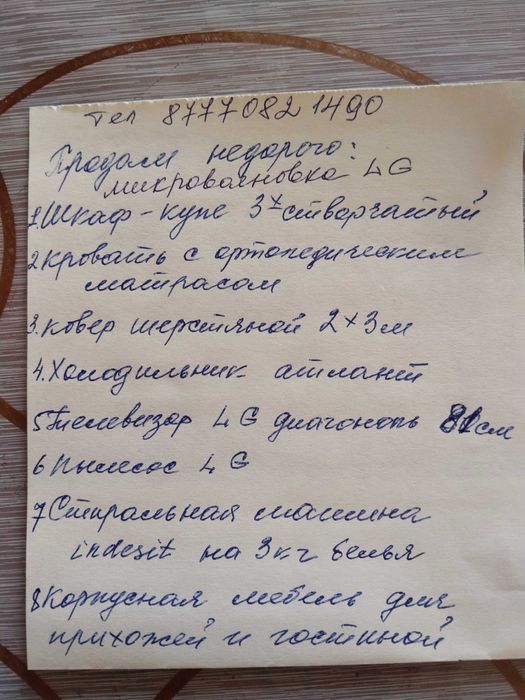 Тел 87770821490
Продам недорого:
микроволновка LG
1. Шкаф-купе 3х створчатый
2 Кровать с ортопедическим
матрасом
3. Ковер шерстяной 2×3м
4. Холодильник атлант
5 Телевизор LG диагональ 81см
6 Пылесос LG
7 Стиральная машина
indesit на 3кг белья
8 Корпусная мебель для
прихожей и гостиной